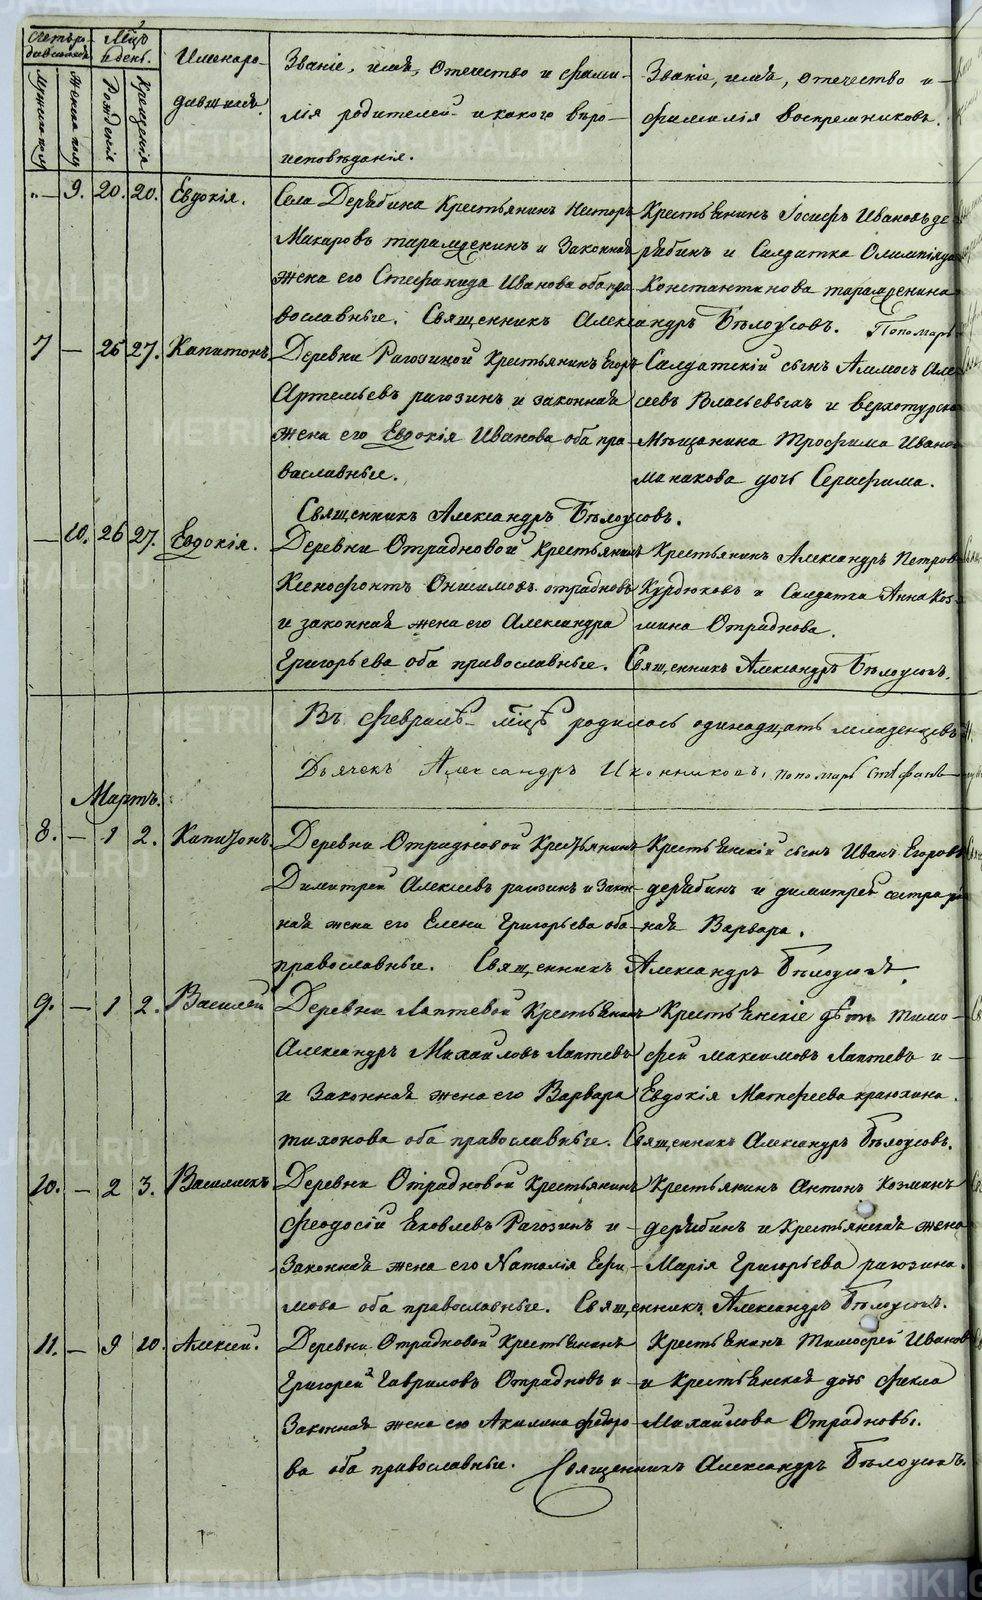 Счетъ родившихся
Мѣсяцъ и день.
Имена родившихся.
Званіе, имя, отечество и фами-
лія родителей и какого вѣро-
исповѣданія.
Званіе, имя, отечество и
фамилія воспріемниковъ.
Мужска полу
Женска полу
Рожденія
Крещенія
„ — 9. 20. 20. Евдокія.
Села Дерябина Крестьянинъ Несторъ
Макаровъ тарамженинъ и Законная
жена его Стефанида Иванова оба пра
вославные. Священникъ Александръ Бѣлоусовъ. Пономарь
Крестьянинъ Іосифъ Ивановъ де
рябинъ и Салдатка Олимпіяда
Константинова тарамженина
7 — 25 27. Капитонъ.
Деревни Рагозиной Крестьянинъ Егоръ
Артемьевъ рагозинъ и законная
жена его Евдокія Иванова оба пра
вославные.
Салдатскій сынъ Алек
сіевъ Власьевыхъ и верхотурска
Мѣщанина Трофима Ивано
манакова дочь Серафима.
Священникъ Александръ Бѣлоусовъ.
— 10. 26 27. Евдокія.
Деревни Отрадновой Крестьянинъ
Ксенофонтъ Онисимовъ отрадновъ
и законная жена его Александра
Григорьева оба православные. Священникъ Александръ Бѣлоусовъ.
Крестьянинъ Александръ Петровъ
Курдюковъ и Салдатка Анна Коз
мина Отраднова.
Въ февралѣ мцѣ родилось одинадцать младенцевъ
Дьячекъ Александръ Иконниковъ, пономарь Стефанъ
Мартъ.
8. — 1 2. Капитонъ.
Деревни Отрадновой Крестьянинъ
Димитрей Алексіевъ рагозинъ и закон-
ная жена его Елена Григорьева оба
православные. Священникъ Александръ Бѣлоусовъ
Крестьянскій сынъ Иванъ Егоровъ
дерябинъ и димитрея сестра род
ная Варвара.
9. — 1 2. Василей
Деревни Лаптевой Крестьянинъ
Александръ Михайловъ Лаптевъ
и Законная жена его Варвара
тихонова оба православные. Священникъ Александръ Бѣлоусовъ.
Крестьянскіе дѣти Тимо-
фей Максимовъ Лаптевъ и —
Евдокія Матфеева краюхина.
10. — 2 3. Василискъ
Деревни Отрадновой Крестьянинъ
Феодосій Яковлевъ Рагозинъ и —
Законная жена его Наталія Ефи-
мова оба православные. Священникъ Александръ Бѣлоусовъ.
Крестьянинъ Антонъ Козминъ
дерябинъ и Крестьянская жена
Марія Григорьева рагозина.
11. — 9 10. Алексій.
Деревни Отрадновой Крестьянинъ
Григорей Гавриловъ Отрадновъ и —
Законная жена его Акилина федоро-
ва оба православные. Священникъ Александръ Бѣлоусовъ.
Крестьянинъ Тимофей Иванов
и Крестьянская дочь Фекла
Михайлова Отрадновы.